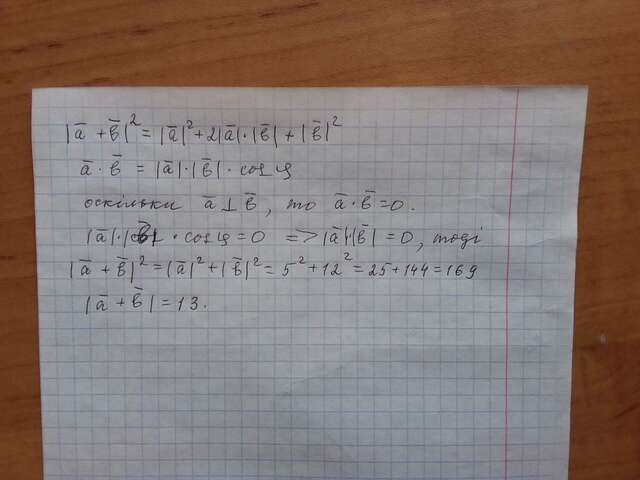 |a̅ + b̅|² = |a̅|² + 2|a̅|·|b̅| + |b̅|²
a̅ · b̅ = |a̅|·|b̅| · cos φ
оскільки a̅ ⊥ b̅, то a̅ · b̅ = 0.
|a̅|·|b̅| · cos φ = 0 => |a̅|·|b̅| = 0, тоді
|a̅ + b̅|² = |a̅|² + |b̅|² = 5² + 12² = 25 + 144 = 169
|a̅ + b̅| = 13.